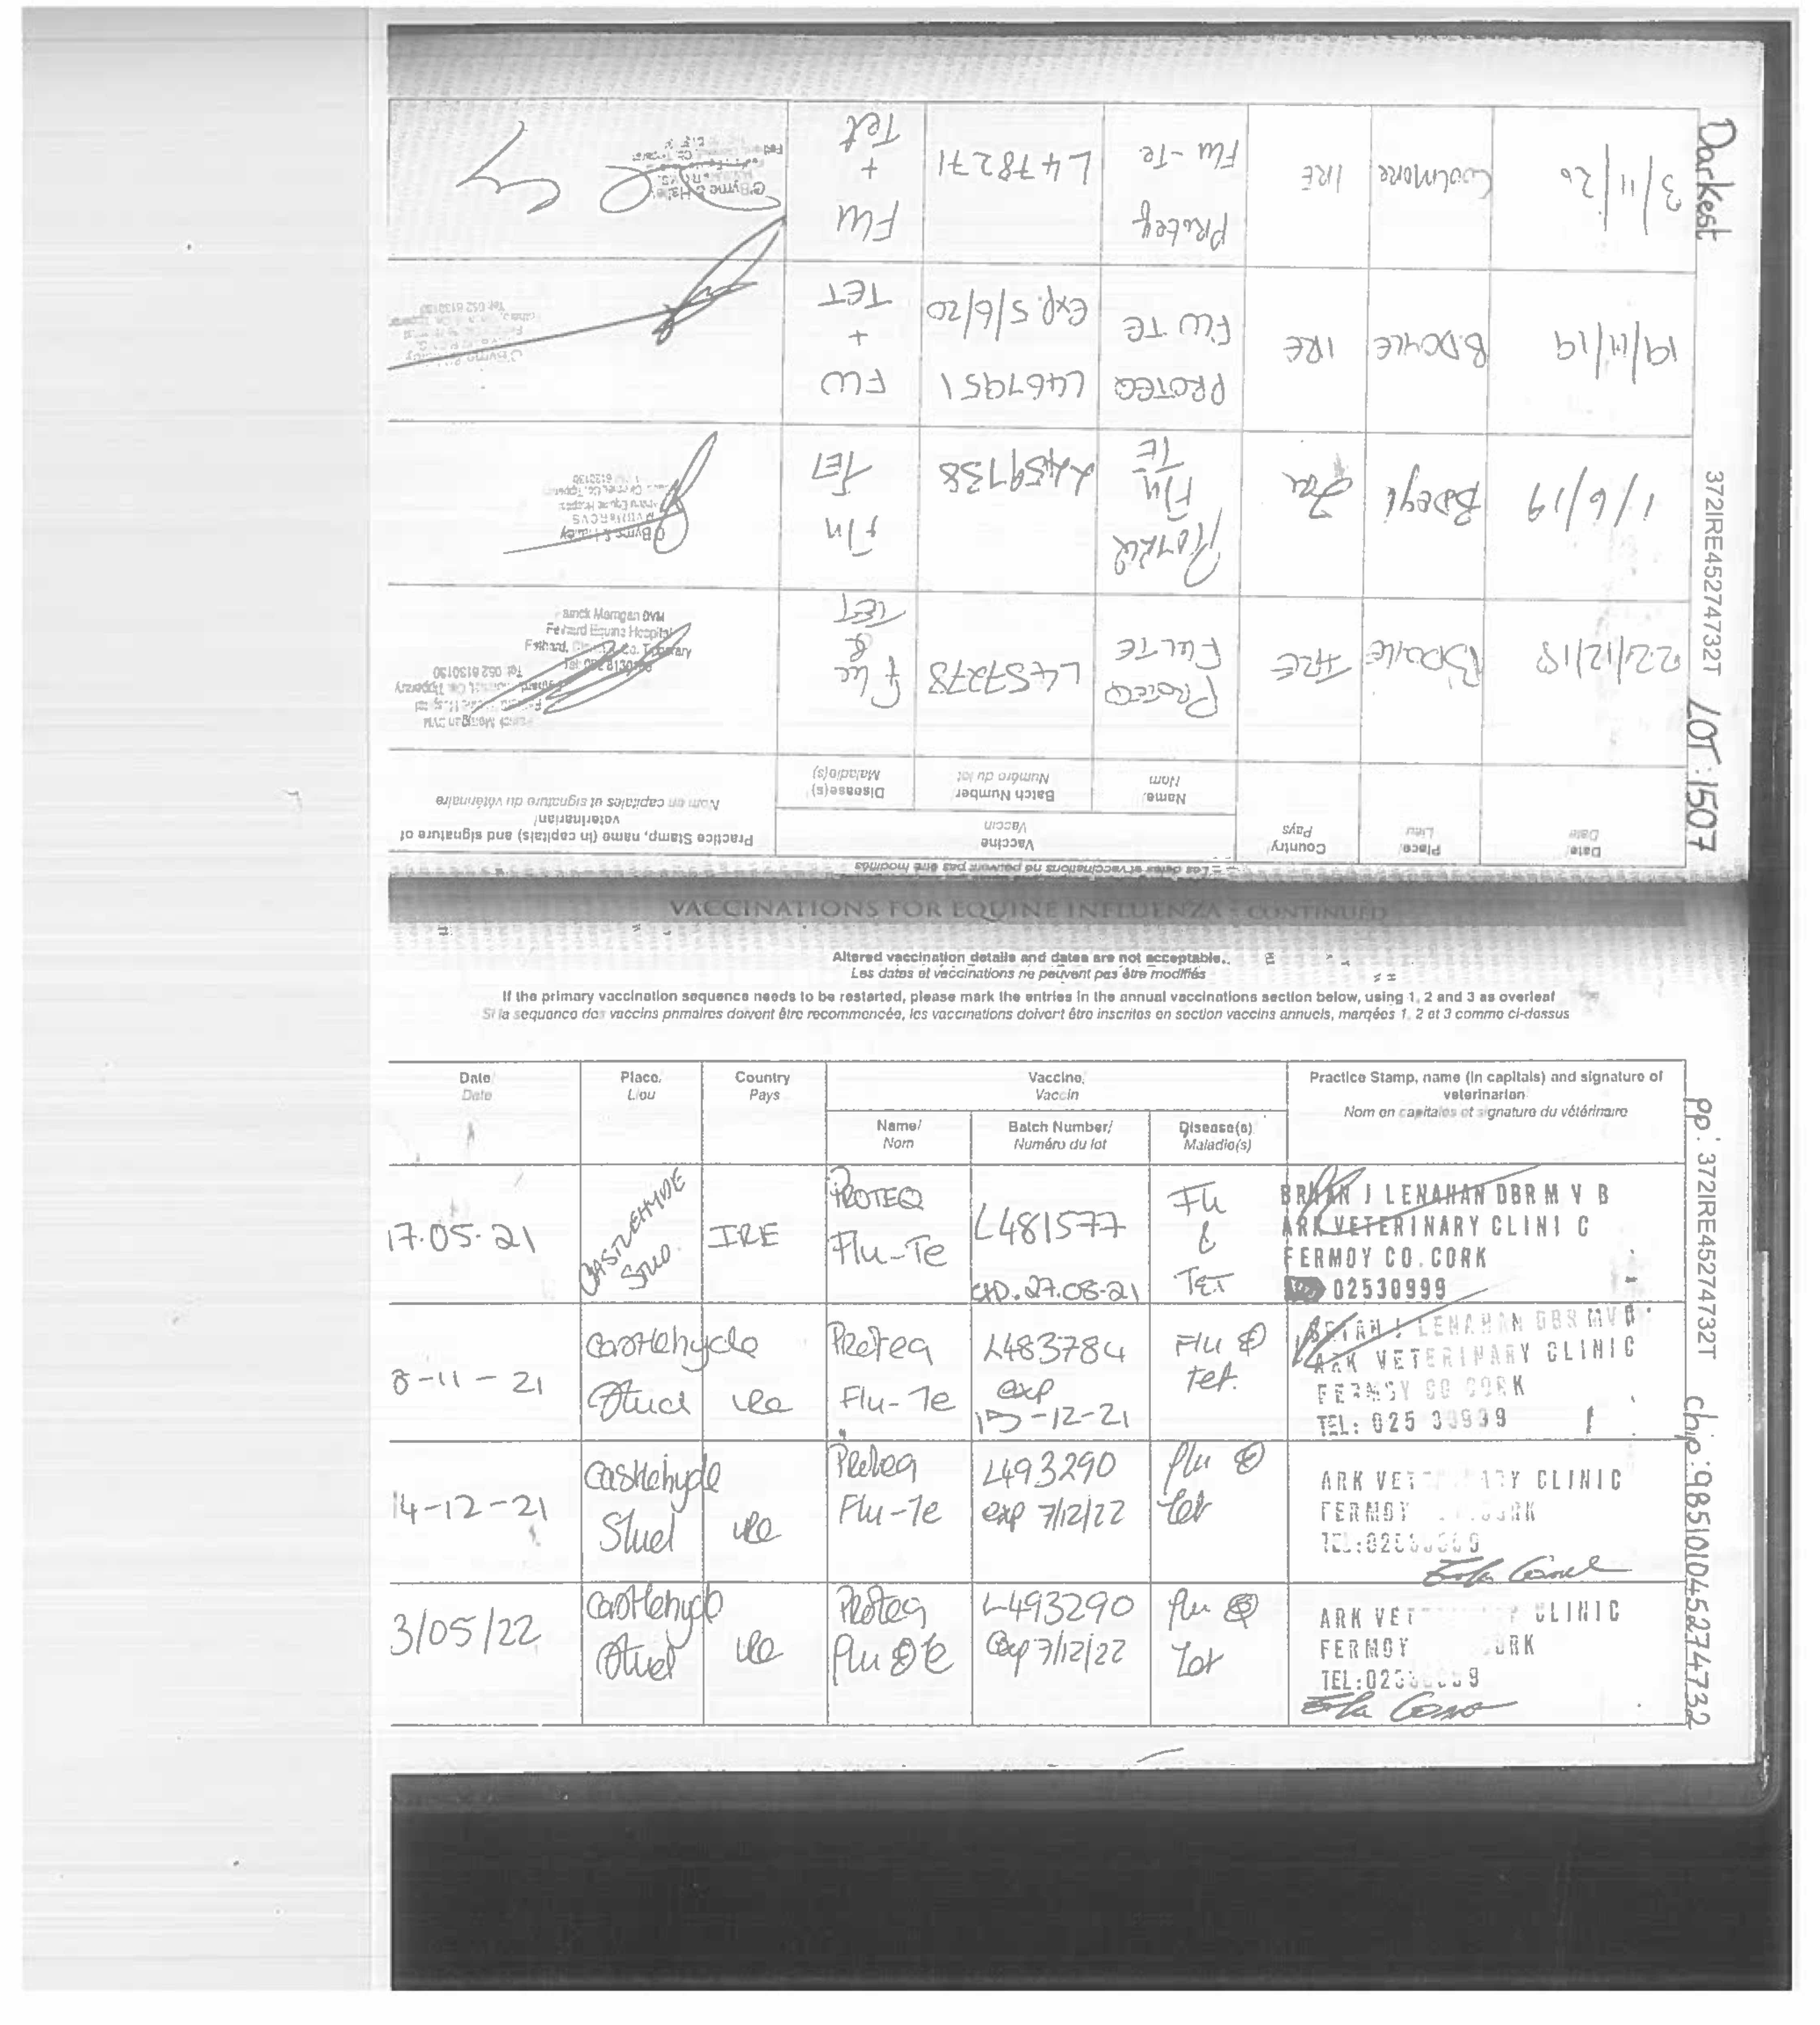 Darkest
372IRE45274732T
LOT: 1507
Les dates et vaccinations ne peuvent pas être modifiés
Date/
Date
Place/
Lieu
Country/
Pays
Vaccine
Vaccin
Name/
Nom
Batch Number/
Numéro du lot
Disease(s)
Maladie(s)
Practice Stamp, name (in capitals) and signature of
veterinarian/
Nom en capitales et signature du vétérinaire
22/12/18
B DOYLE
IRE
PROTEQ
FLU TE
L457278
Flu
&
TET
Patrick Morrigan DVM
Fethard Equine Hospital
Fethard, Clonmel, Co. Tipperary
Tel: 052 6130130
1/6/19
Fethard Equine Hospital
Clonmel, Co. Tipperary
O'Byrne & Halley
PROTEQ
Flu
TE
L459738
Flu
TET
19/11/19
B.DOYLE
IRE
PROTEQ
FLU TE
L467951
exp. 5/6/20
FLU
+
TET
O'Byrne & Halley
Tel: 052 6130130
3/11/20
Coolmore
IRE
Proteq
Flu-Te
L478271
FLU
+
Tet
O'Byrne & Halley
VACCINATIONS FOR EQUINE INFLUENZA - CONTINUED
Altered vaccination details and dates are not acceptable.
Les dates et vaccinations ne peuvent pas être modifiés
If the primary vaccination sequence needs to be restarted, please mark the entries in the annual vaccinations section below, using 1, 2 and 3 as overleaf
Si la sequence des vaccins primaires doivent être recommencée, les vaccinations doivent être inscrites en section vaccins annuels, marqées 1, 2 et 3 comme ci-dessus
Date/
Date
Place/
Lieu
Country
Pays
Vaccine/
Vaccin
Name/
Nom
Batch Number/
Numéro du lot
Disease(s)
Maladie(s)
Practice Stamp, name (in capitals) and signature of
veterinarian
Nom en capitales et signature du vétérinaire
17.05.21
CASTLEHYDE
STUD.
IRE
PROTEQ
Flu-Te
L481577
EXD.27.08.21
Flu
&
TET
BRIAN J LENAHAN DBR M V B
ARK VETERINARY CLINIC
FERMOY CO. CORK
02530999
8-11-21
Castlehyde
Stud
ire
Proteq
Flu-Te
L483784
exp
15-12-21
Flu &
Tet.
BRIAN J LENAHAN DBR MVB
ARK VETERINARY CLINIC
FERMOY CO CORK
TEL: 025 30999
14-12-21
Castlehyde
Stud
ire
Proteq
Flu-Te
L493290
exp 7/12/22
flu &
tet
ARK VETERINARY CLINIC
FERMOY CORK
3/05/22
Castlehyde
Stud
ire
Proteq
Flu & te
L493290
exp 7/12/22
flu &
Tet
ARK VET CLINIC
FERMOY CORK
pp: 372IRE45274732T
chip: 985101045274732